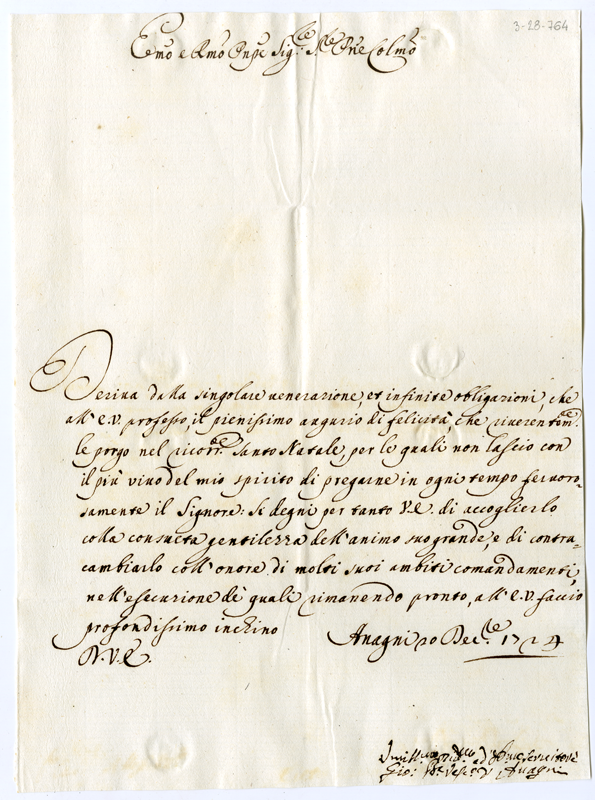 3-28-764
Emo e Rmo Pnpe Sig.re Sre Pne Colmo
Deriua dalla singolare uenerazione, et infinite obligazioni, che
all'E.V. professo, il pienissimo augurio di felicità, che riuerentem.te
le porgo nel ricorr.te Santo Natale, per le quali non lascio con
il più uiuo del mio spirito di pregarne in ogni tempo feruoro-
samente il Signore: Si degni per tanto V.E. di accoglierlo
colla consueta gentilezza dell'animo suo grande, e di contra-
cambiarlo coll'onore di molti suoi ambiti comandamenti,
nell'esecuzione de quali rimanendo pronto, all'E.V. faccio
profondissimo inchino
Anagni 20 Dec.re 1724
D.V.E.
seruitore
Gio: Vesc.o d'Anagni